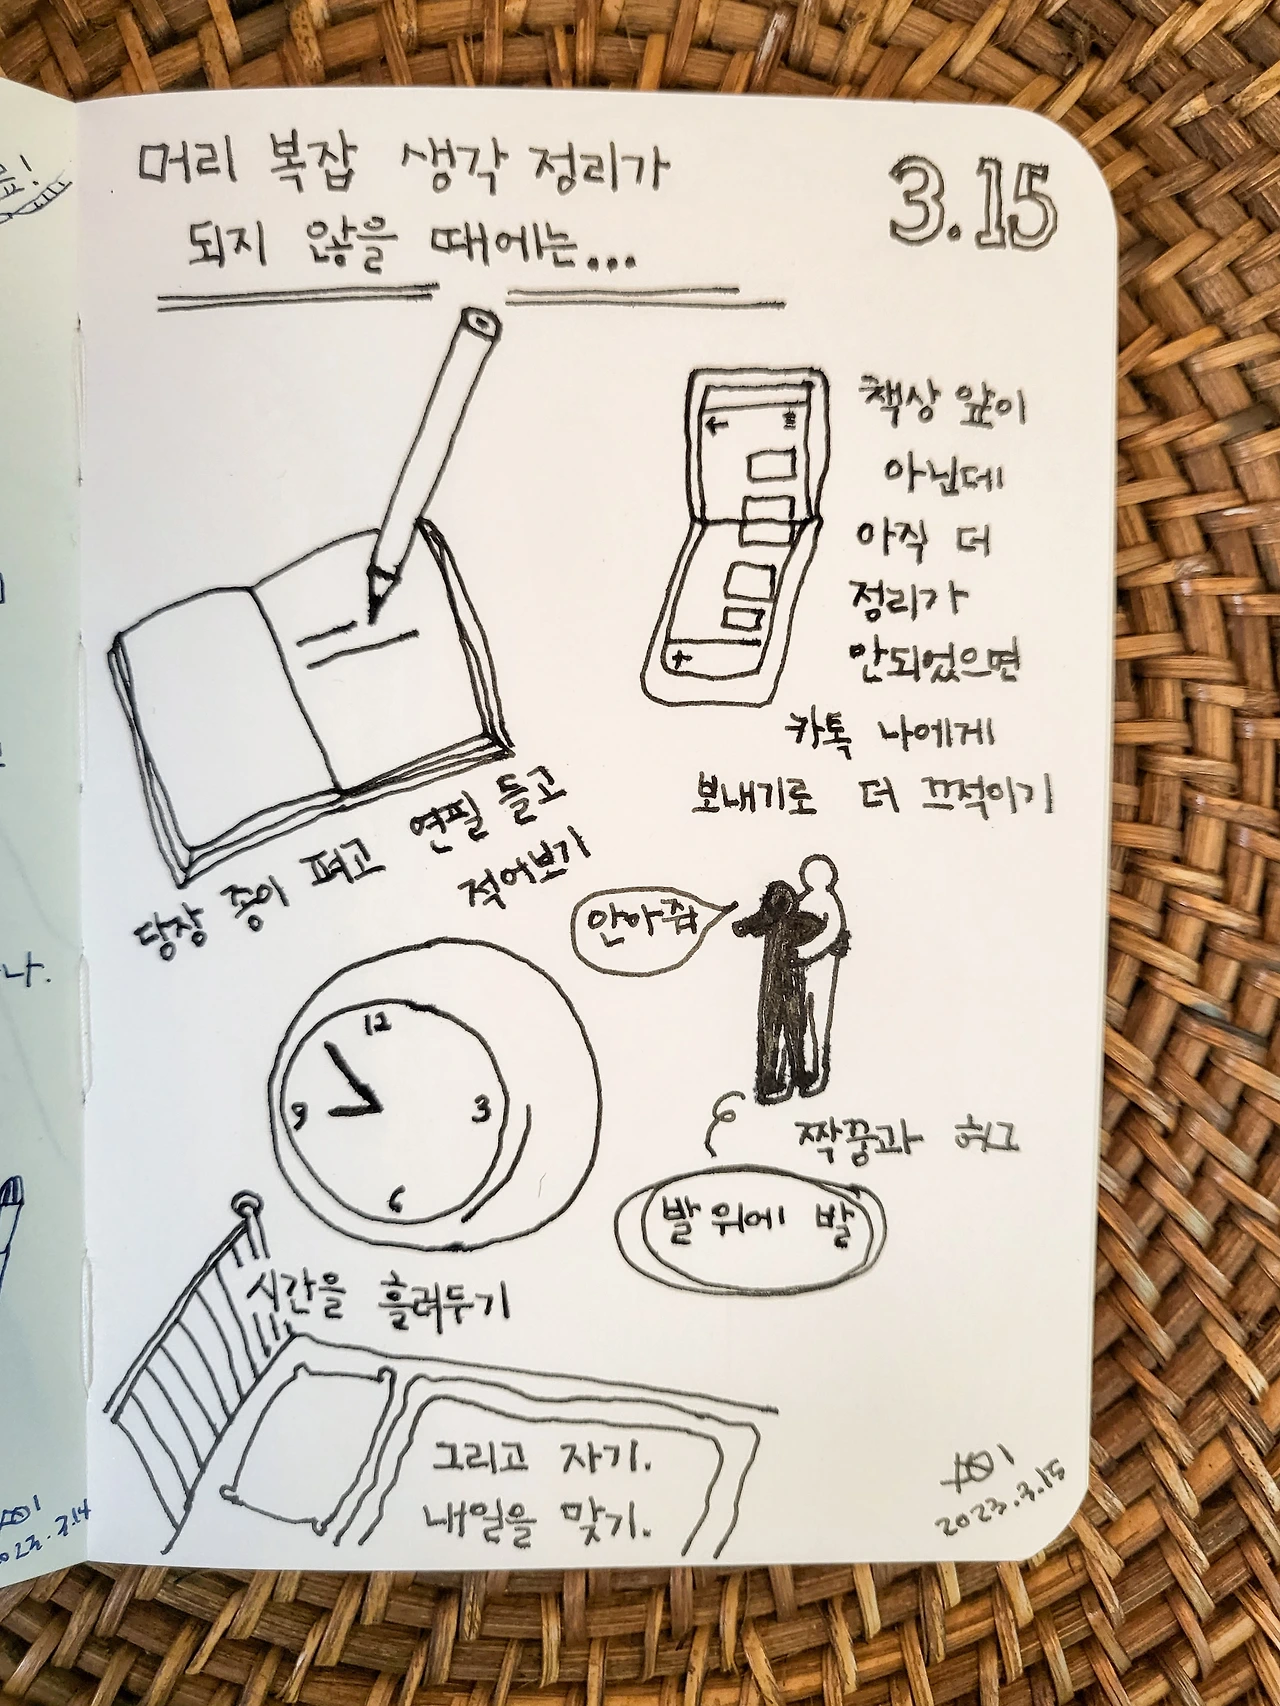 머리 복잡 생각 정리가
되지 않을 때에는...
3.15
당장 종이 펴고 연필 들고
적어보기
책상 앞이
아닌데
아직 더
정리가
안되었으면
카톡 나에게
보내기로 더 끄적이기
안아줘
짝꿍과 허그
발 위에 발
12
9
3
6
시간을 흘려두기
그리고 자기.
내일을 맞기.
2023.3.15
나.